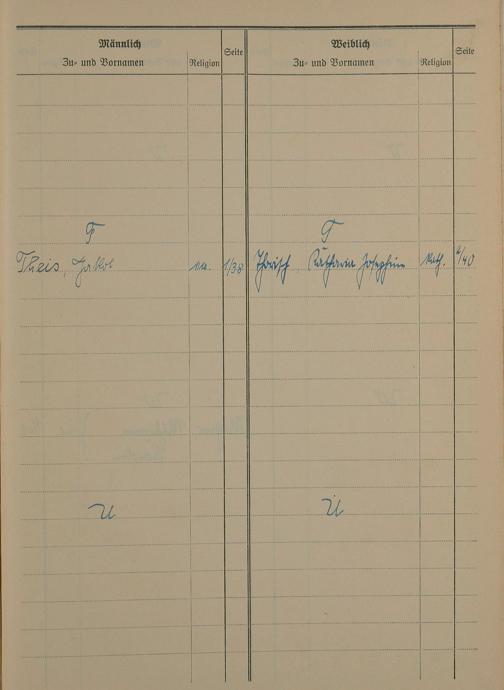 Männlich
Zu- und Vornamen
Religion
Seite
Weiblich
Zu- und Vornamen
Religion
Seite
T
T
Theis, Jakob
ev.
1/38
Katharina Josephine
kath.
/40
U
U